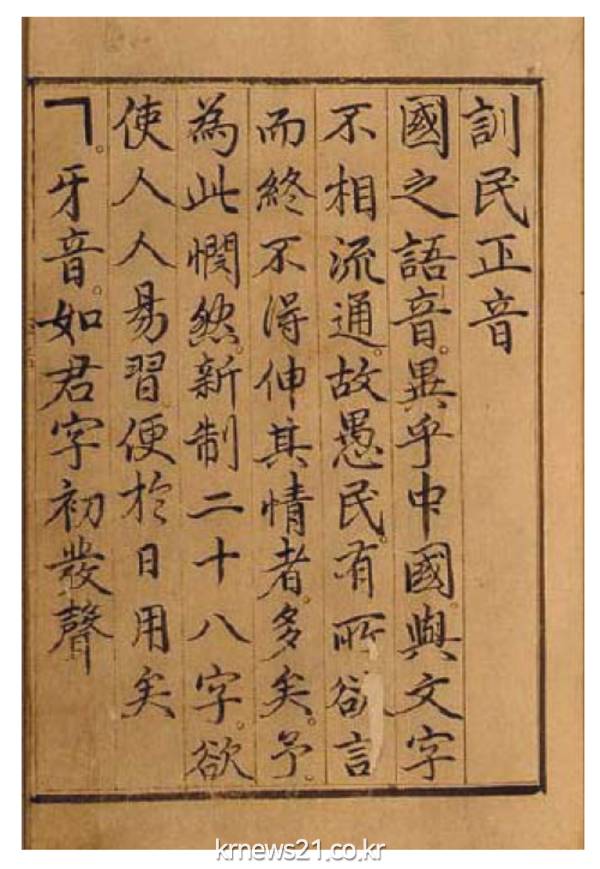 訓民正音
國之語音。異乎中國。與文字
不相流通。故愚民。有所欲言
而終不得伸其情者。多矣。予。
為此憫然。新制二十八字。欲
使人人易習便於日用矣
ㄱ。牙音。如君字初發聲
krnews21.co.kr